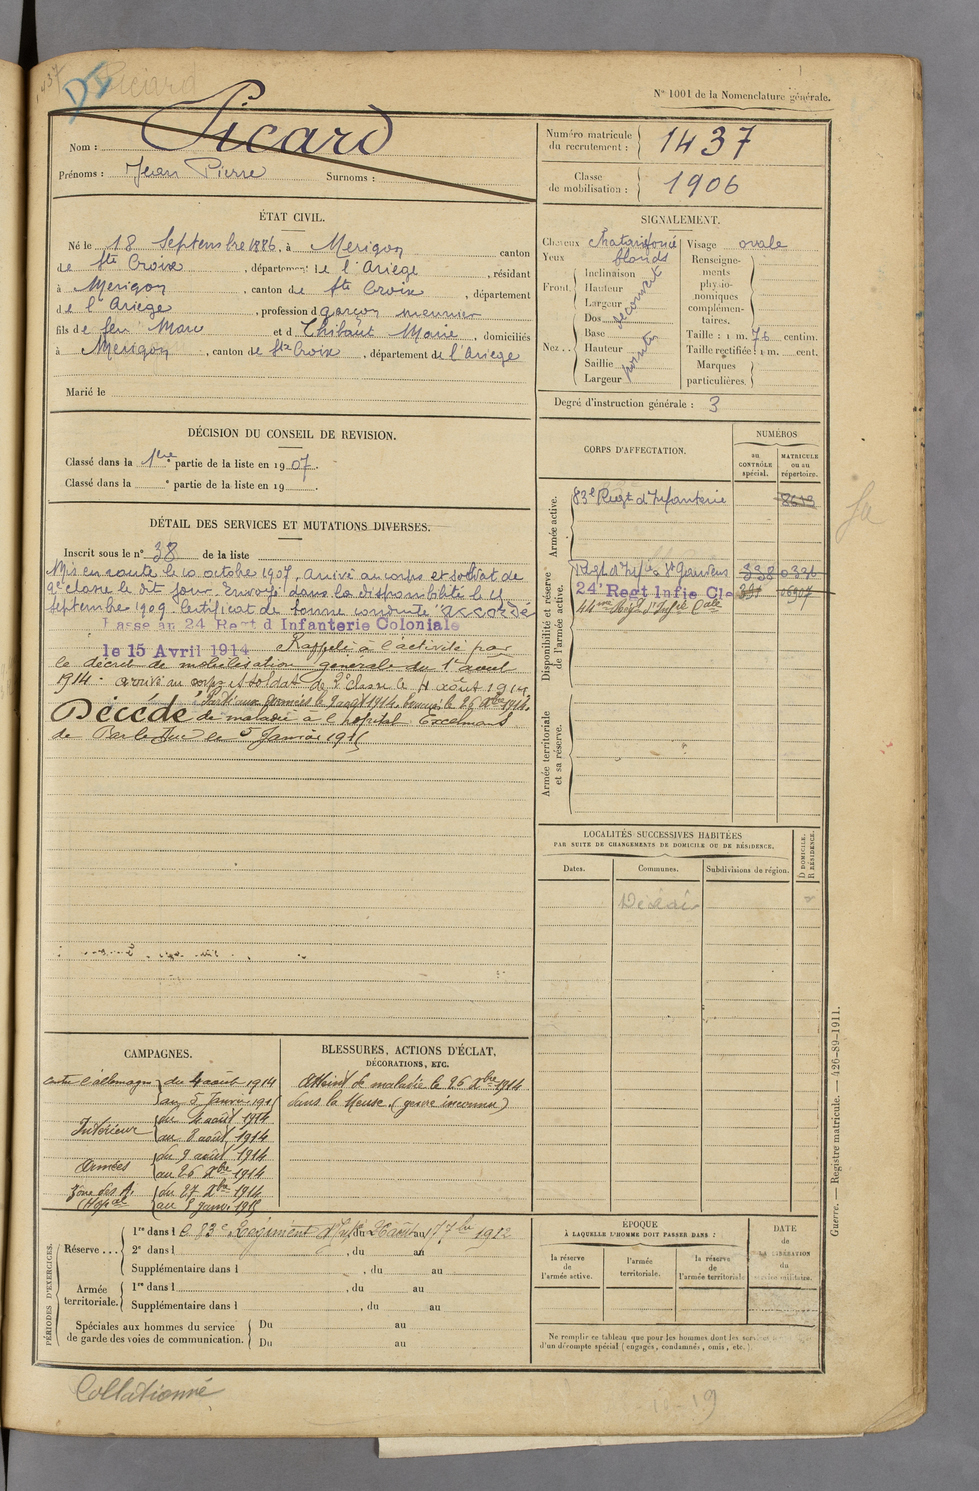 Picard
N° 1001 de la Nomenclature générale.
Nom : Picard
Prénoms : Jean Pierre Surnoms :
Numéro matricule du recrutement : 1437
Classe de mobilisation : 1906
ÉTAT CIVIL.
Né le 18 Septembre 1886, à Merigon canton
de Ste Croix, département de l'Ariege, résidant
à Merigon, canton de Ste Croix, département
de l'Ariege, profession d garçon meunier
fils de feu Marc et d Thibaut Marie, domiciliés
à Merigon, canton de Ste Croix, département de l'Ariege
Marié le
SIGNALEMENT.
Cheveux chatain foncé
Yeux blonds
Front. Inclinaison
Hauteur
Largeur
découvert
Nez.. Dos
Base
Hauteur
Saillie
Largeur
pointu
Visage ovale
Renseigne-
ments
physio-
nomiques
complémen-
taires.
Taille : 1 m. 76 centim.
Taille rectifiée : 1 m. cent.
Marques
particulières.
Degré d'instruction générale : 3
DÉCISION DU CONSEIL DE REVISION.
Classé dans la 1re partie de la liste en 1907.
Classé dans la ° partie de la liste en 19 .
DÉTAIL DES SERVICES ET MUTATIONS DIVERSES.
Inscrit sous le n° 38 de la liste
Mis en route le 10 octobre 1907, arrivé au corps et soldat de
2e classe le dit jour. Envoyé dans la disponibilité le
Septembre 1909. Certificat de bonne conduite "accordé
Passé au 24 Regt d Infanterie Coloniale
le 15 Avril 1914 Rappelé à l'activité par
le décret de mobilisation générale du 1er aout
1914 - arrivé au corps et soldat de 2e classe le 4 août 1914,
Parti aux armées le 9 août 1914. le 26 Xbre 1914.
Décédé de maladie à l'hopital Excelmans
de Bar le Duc le 5 Janvier 1915
CORPS D'AFFECTATION.
NUMÉROS
au CONTRÔLE spécial.
MATRICULE ou au répertoire.
Armée active.
83e Regt d'Infanterie 8653
Disponibilité et réserve de l'armée active.
Regt d'Infie St Gaudens
24e Regt Infie Cle
44me Regt d'Infie Cale
Armée territoriale et sa réserve.
LOCALITÉS SUCCESSIVES HABITÉES
PAR SUITE DE CHANGEMENTS DE DOMICILE OU DE RÉSIDENCE.
Dates. Communes. Subdivisions de région. D DOMICILE. R RÉSIDENCE.
CAMPAGNES.
Contre l'allemagne du 4 août 1914
au 5 Janvier 1915
Intérieur du 4 août 1914
au 8 août 1914
Armées du 9 août 1914
au 26 Xbre 1914
Zone des A. (Hopal) du 27 Xbre 1914
au 5 janvr 1915
BLESSURES, ACTIONS D'ÉCLAT,
DÉCORATIONS, ETC.
Atteint de maladie le 26 Xbre 1914
dans la Meuse. (genre inconnu)
PÉRIODES D'EXERCICES.
Réserve ... 1re dans le 83e Régiment d'Infie du au 17 7bre 1912
2e dans l , du au
Supplémentaire dans l , du au
Armée territoriale. 1re dans l , du au
Supplémentaire dans l , du au
Spéciales aux hommes du service
de garde des voies de communication. Du au
Du au
ÉPOQUE
À LAQUELLE L'HOMME DOIT PASSER DANS :
la réserve de l'armée active.
l'armée territoriale.
la réserve de l'armée territoriale
DATE de LA LIBÉRATION du service militaire.
Ne remplir ce tableau que pour les hommes dont les services
d'un décompte spécial (engagés, condamnés, omis, etc.).
Guerre. — Registre matricule. — 426-89-1911.
Collationné